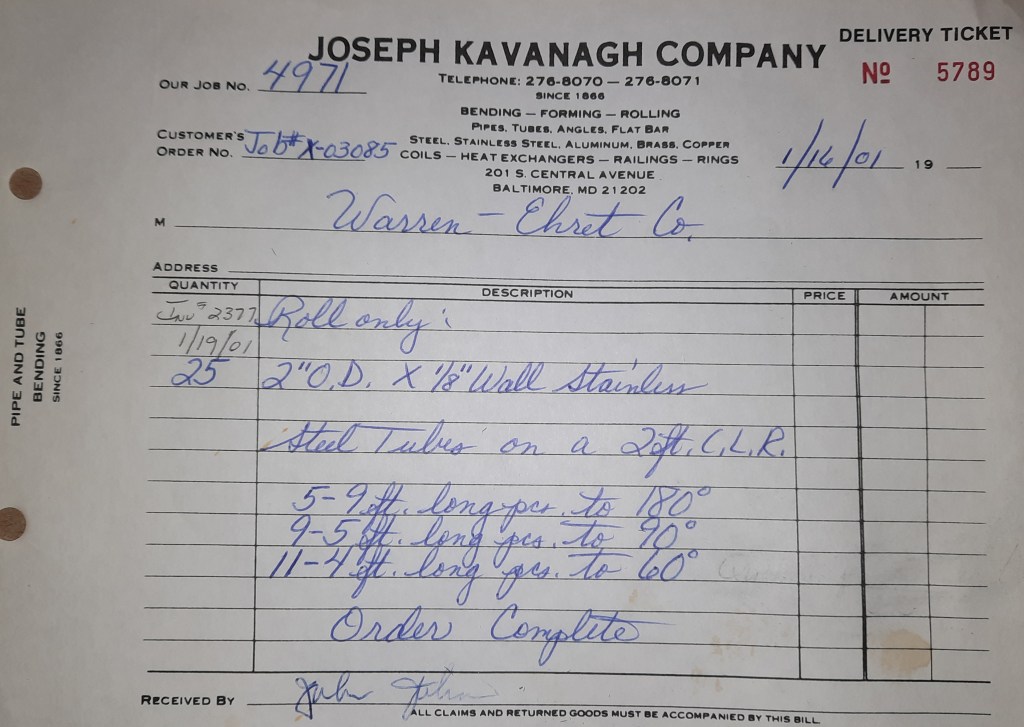 DELIVERY TICKET
JOSEPH KAVANAGH COMPANY
Nº 5789
OUR JOB NO. 4971
TELEPHONE: 276-8070 — 276-8071
SINCE 1866
BENDING — FORMING — ROLLING
PIPES, TUBES, ANGLES, FLAT BAR
CUSTOMER'S ORDER NO. Job# X-03085
STEEL, STAINLESS STEEL, ALUMINUM, BRASS, COPPER
COILS — HEAT EXCHANGERS — RAILINGS — RINGS
201 S. CENTRAL AVENUE
BALTIMORE, MD 21202
1/16/01 19
M Warren - Ehret Co.
ADDRESS
QUANTITY DESCRIPTION PRICE AMOUNT
Inv # 2377 Roll only:
1/19/01
25 2" O.D. X 1/8" Wall Stainless
Steel Tubes on a 2 ft. C.L.R.
5-9 ft. long pcs. to 180°
9-5 ft. long pcs. to 90°
11-4 ft. long pcs. to 60°
Order Complete
RECEIVED BY John
ALL CLAIMS AND RETURNED GOODS MUST BE ACCOMPANIED BY THIS BILL
PIPE AND TUBE
BENDING
SINCE 1866